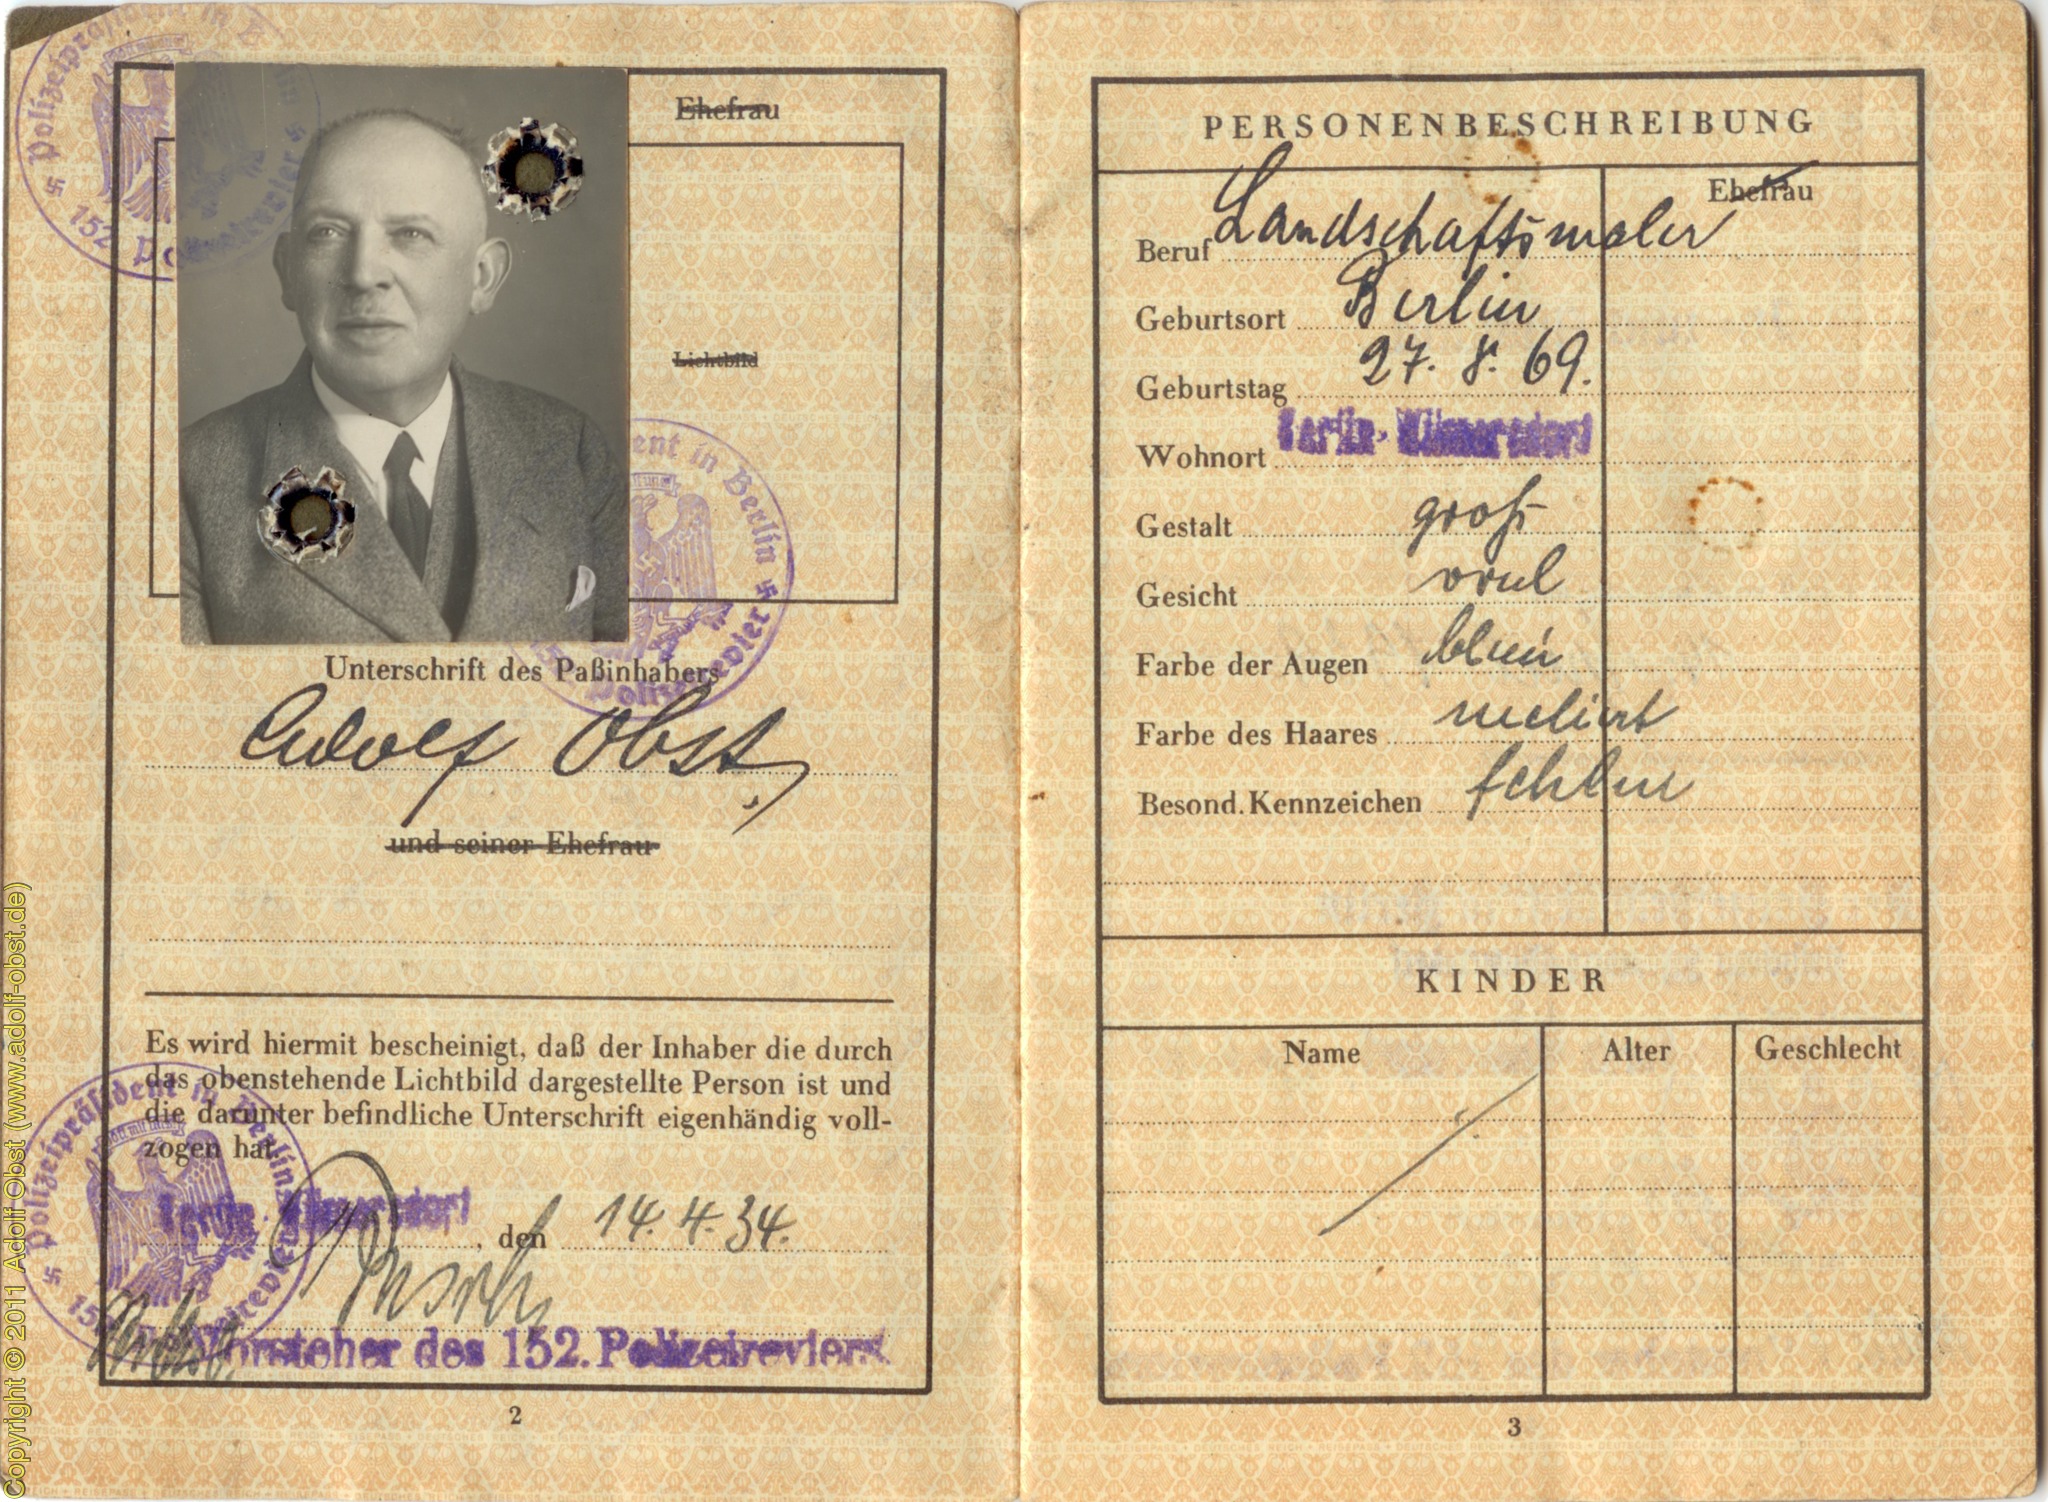 Polizeipräsident in B
152
Ehefrau
Lichtbild
ent in Berlin
Polizeirevier
Unterschrift des Paßinhabers
Adolf Obst
und seiner Ehefrau
Es wird hiermit bescheinigt, daß der Inhaber die durch
das obenstehende Lichtbild dargestellte Person ist und
die darunter befindliche Unterschrift eigenhändig voll-
zogen hat.
Polizeipräsident in Berlin
Berlin-Wilmersdorf, den 14.4.34.
Vorsteher des 152. Polizeireviers
2
PERSONENBESCHREIBUNG
Ehefrau
Beruf Landschaftsmaler
Geburtsort Berlin
Geburtstag 27. 8. 69.
Wohnort Berlin-Wilmersdorf
Gestalt groß
Gesicht oval
Farbe der Augen blau
Farbe des Haares meliert
Besond. Kennzeichen fehlen
KINDER
Name Alter Geschlecht
3
Copyright © 2011 Adolf Obst (www.adolf-obst.de)